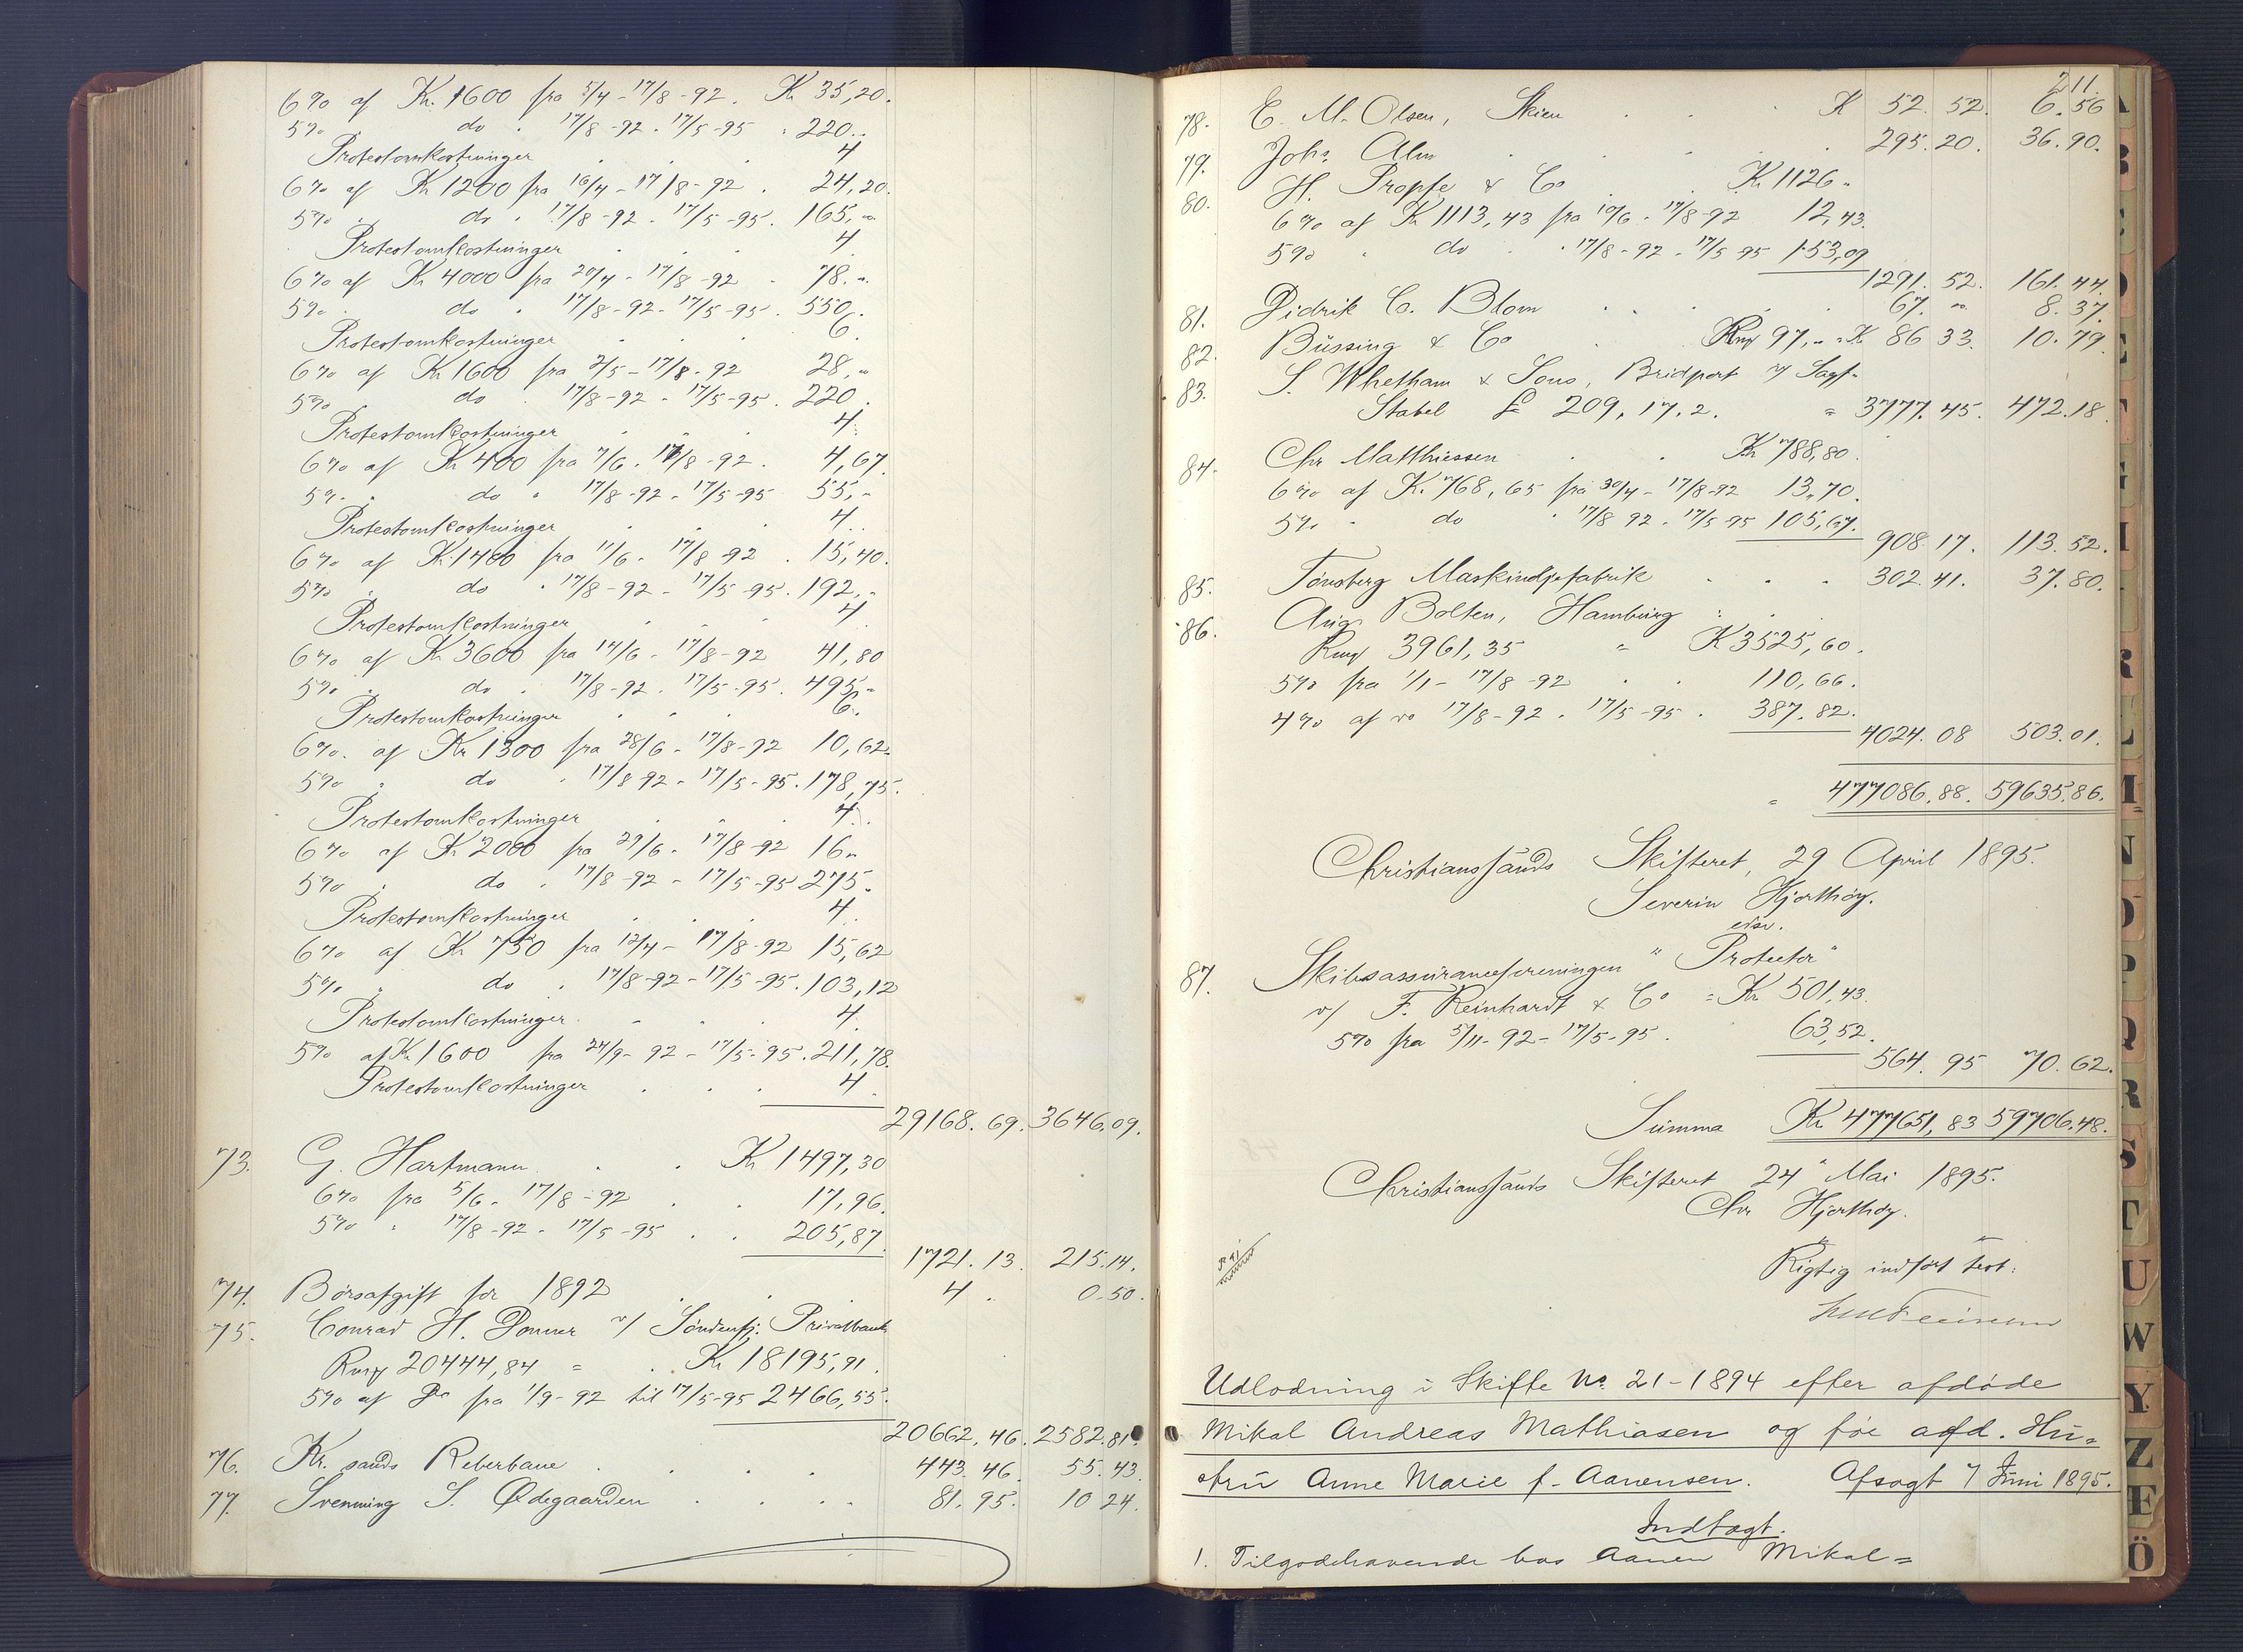 6% af Kr. 1600 fra 5/4 - 17/8 - 92. K 35,20.
5% " do " 17/8 - 92 - 17/5 - 95 " 220..
Protestomkostninger . . . 4
6% af Kr 1200 fra 16/4 - 17/8 - 92 . 24,20.
5% " do " 17/8 - 92 - 17/5 - 95. 165,"
Protestomkostninger . . . 4
6% af Kr 4000 fra 20/4 - 17/8 - 92 - 78."
5% " do " 17/8 - 92 - 17/5 - 95. 550.
Protestomkostninger . . . 6.
6% af Kr 1600 fra 2/5 - 17/8 - 92 28,"
5% " do " 17/8 - 92 - 17/5 - 95. 220.
Protestomkostninger . . . 4.
6% af Kr 400 fra 7/6 - 17/8 - 92. 4,67.
5% " do " 17/8 - 92 - 17/5 - 95 55,"
Protestomkostninger . . . 4..
6% af Kr. 1400 fra 11/6 - 17/8 - 92 . 15,40.
5% " do " 17/8 - 92 - 17/5 - 95. 192,"
Protestomkostninger . . . 4
6% af Kr 3600 fra 14/6 - 17/8 - 92 41,80
5% " do " 17/8 - 92 - 17/5 - 95. 495"
Protestomkostninger . . . 6.
6% af Kr 1300 fra 28/6 - 17/8 - 92 10,62.
5% " do " 17/8 92 - 17/5 - 95. 178,75.
Protestomkostninger . . . 4..
6% af Kr 2000 fra 29/6 - 17/8 - 92 16"
5% " do " 17/8 - 92 - 17/5 - 95 275.
Protestomkostninger . . . 4.
6% af Kr 750 fra 12/4 - 17/8 - 92 15,62
5% " do " 17/8 - 92 - 17/5 - 95. 103,12
Protestomkostninger . . . 4.
5% af Kr. 1600 fra 24/9 - 92 - 17/5 - 95. 211,78.
Protestomkostninger . . . 4.
29168.69. 3646.09.
73. G. Hartmann . . Kr 1497,30
6% fra 5/6 - 17/8 - 92 . . 17,96.
5% " 17/8 - 92 - 17/5 - 95 . . 205,87.
1721.13. 215.14.
74. Børsafgift for 1892 . . . 4 . 0.50.
75. Conrad H. Donner v/ Søndenfj. Privatbank
Rmf 20444,84 = . Kr 18195,91.
5% af Do fra 1/9 - 92 til 17/5 - 95 2466,55.
20662.46. 2582.81.
76. Kr. sands Reberbane . . . . 443.46. 55.43.
77. Svenning S. Ødegaarden . . . . 81.95. 10 24.
211.
78. E. M. Olsen, Skien . . . K 52. 52. 6.56
79. Johs Alm . . . . 295.20. 36.90.
80. H. Propfe & Co . . Kr 1126"
6% af Kr 1113,43 fra 10/6 - 17/8 - 92 12,43.
5% " do . " 17/8 - 92 - 17/5 95 153,09
1291.52. 161.44.
81. Didrik C. Blom . . . . 67. " 8.37.
82. Büssing & Co . Rmf 97," = K 86 33. 10.79.
83. S. Whetham & Sons, Bridport v/ Sagf.
Stabel £ 209.17.2. = 3777.45. 472.18.
84. Chr Matthiessen . . Kr 788,80.
6% af Kr. 768,65 fra 30/4 - 17/8 - 92 13,70.
5% " do " 17/8 92 - 17/5 - 95 105,67.
908.17. 113.52.
85. Tønsberg Maskinoljefabrik . . . 302.41. 37.80.
86. Aug. Bolten, Hamburg : .
Rmf 3961,35 = K 3525,60.
5% fra 1/1 - 17/8 - 92 . . 110,66.
4% af do 17/8 - 92 - 17/5 - 95 . 387.82.
4024.08 503.01.
= 477086.88. 59635.86.
Christianssands Skifteret, 29 April 1895.
Severin Hjorthøy.
edsv.
87. Skibsassuranceforeningen "Protector"
v/ F. Reinhardt & Co = Kr 501,43.
5% fra 5/11 - 92 - 17/5 - 95 . 63,52.
564.95 70.62.
Summa Kr 477651,83 59706.48.
Christianssands Skifteret 24 Mai 1895.
Chr Hjorthøy.
Rigtig indført test:
Udlodning i Skifte No. 21 - 1894 efter afdøde
Mikal Andreas Mathiasen og før afd. Hu=
stru Anne Marie f. Aanensen. Afsagt 7 Juni 1895.
Indtægt.
1. Tilgodehavende hos Aanen Mikal=